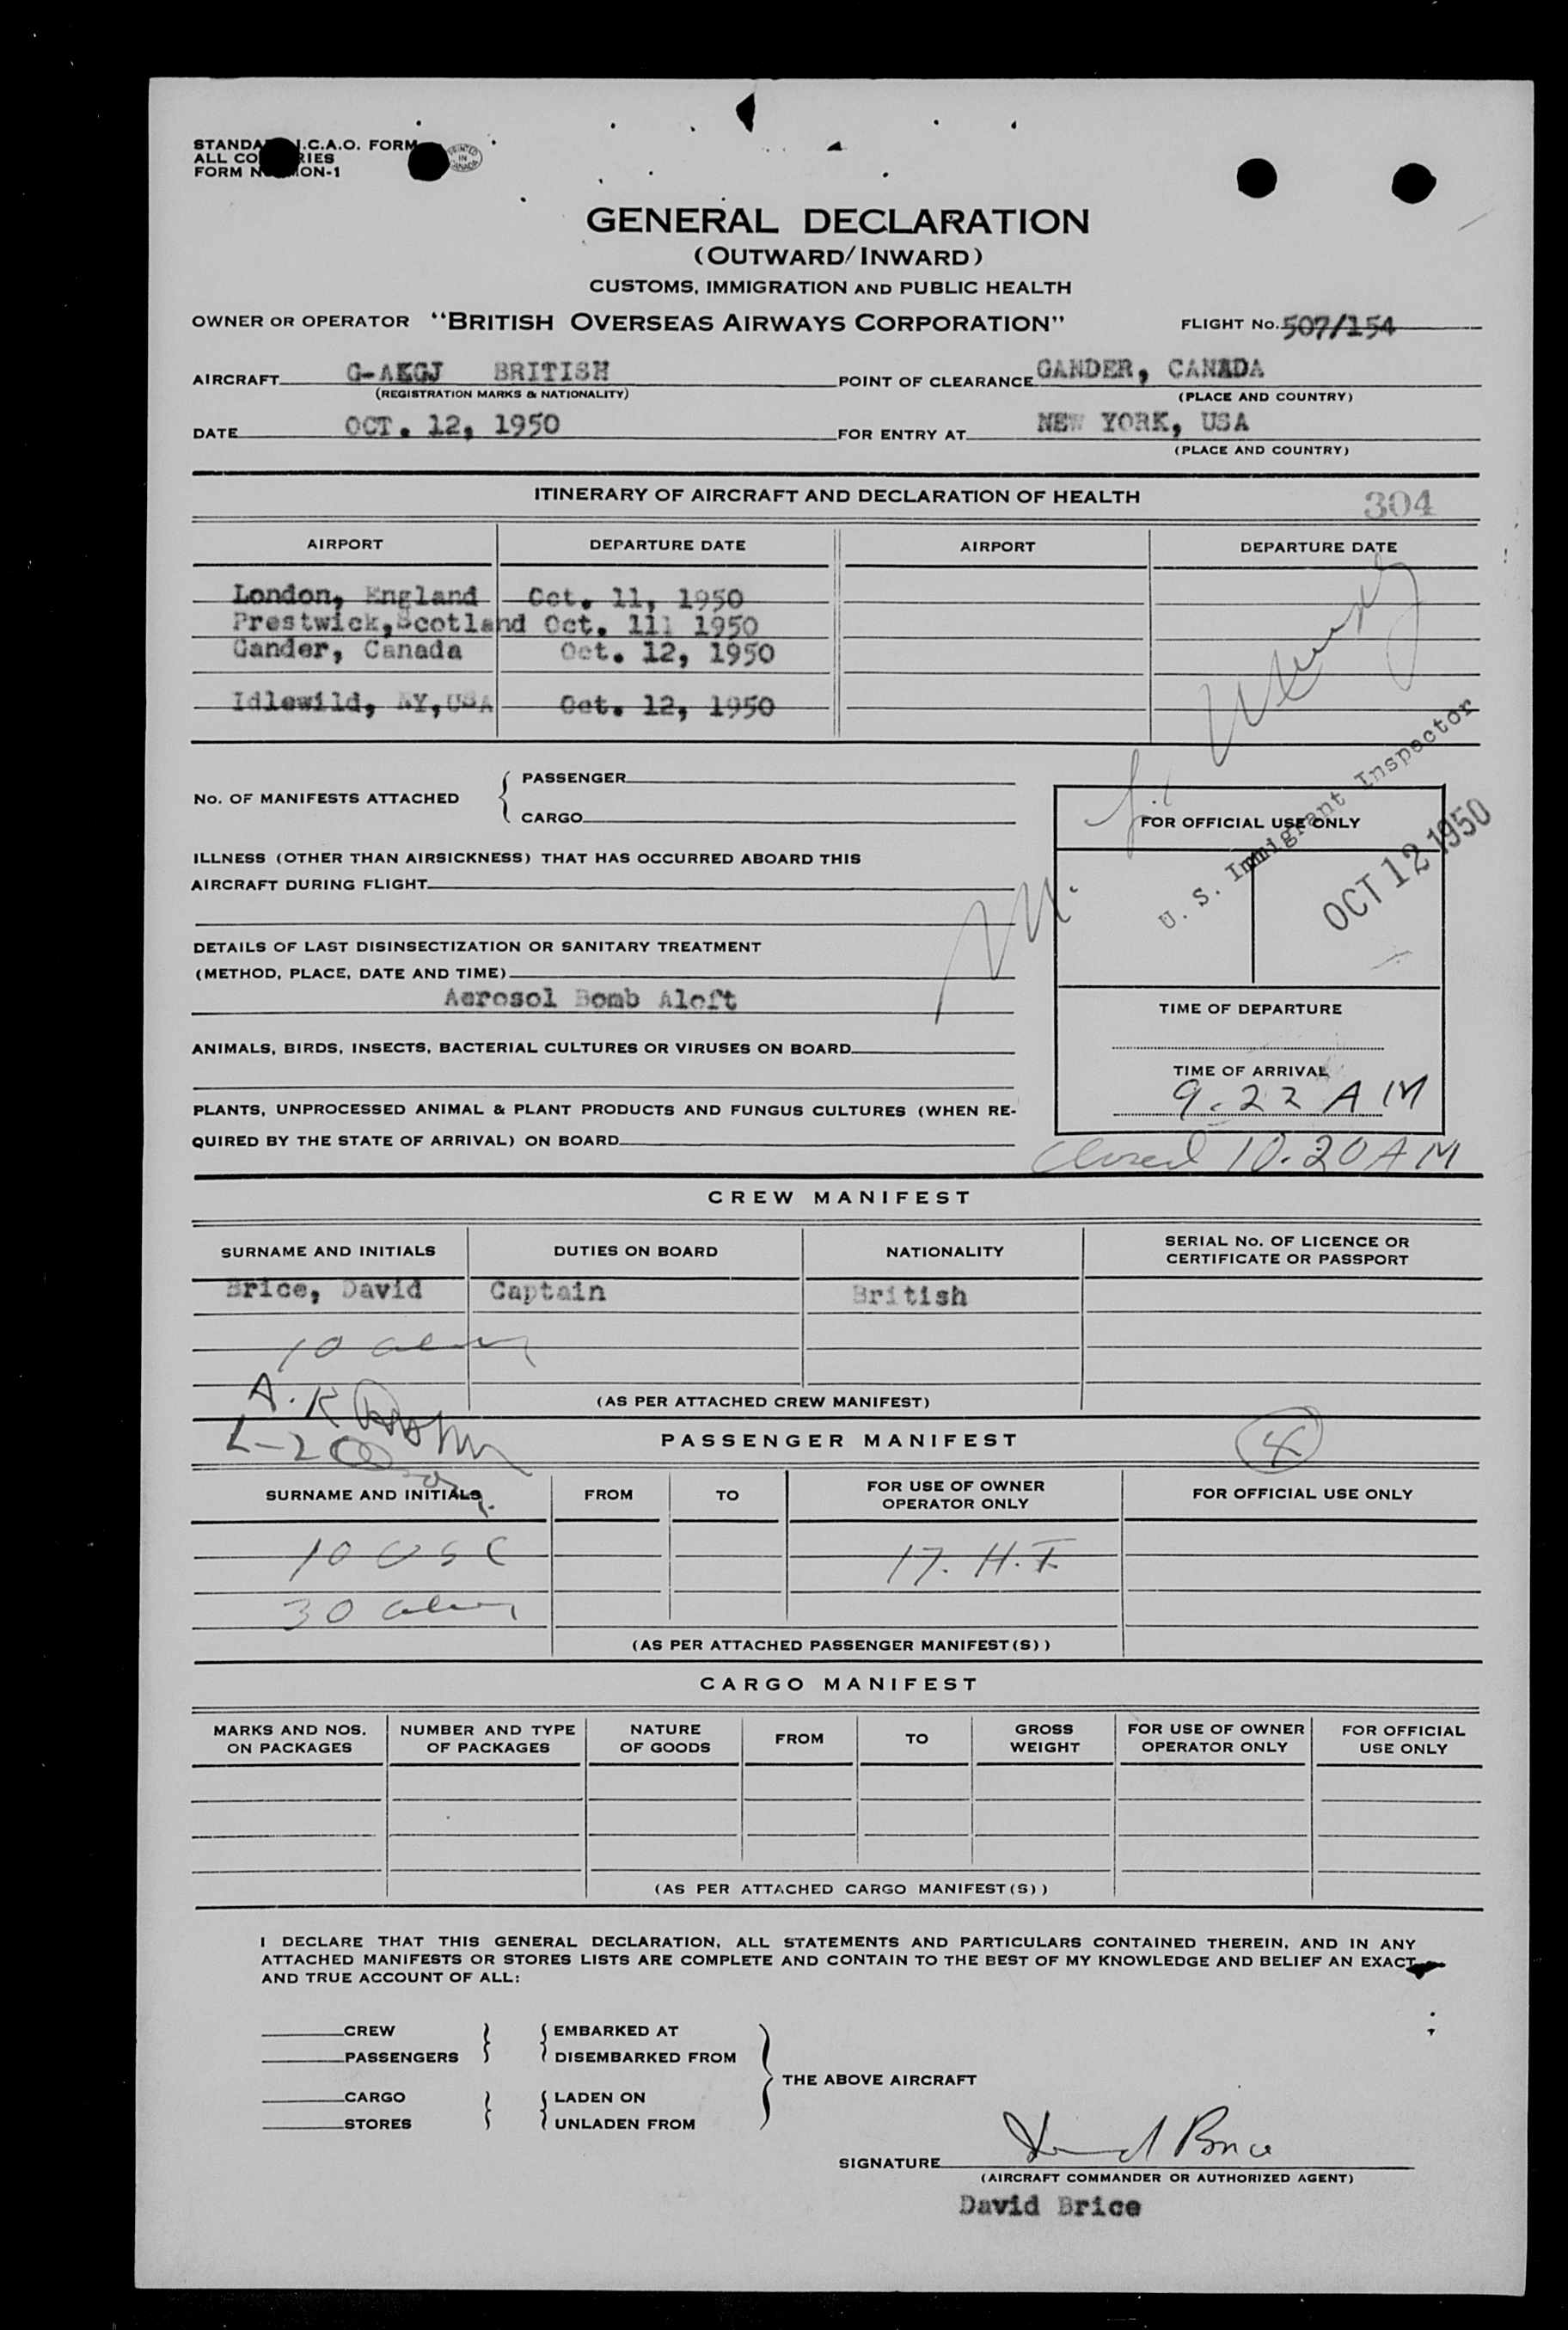 I.C.A.O. FORM
ALL
FORM
PRINTED IN CANADA
GENERAL DECLARATION
(OUTWARD/INWARD)
CUSTOMS, IMMIGRATION AND PUBLIC HEALTH
OWNER OR OPERATOR "BRITISH OVERSEAS AIRWAYS CORPORATION" FLIGHT No. 507/154
AIRCRAFT G-AKGJ BRITISH POINT OF CLEARANCE GANDER, CANADA
(REGISTRATION MARKS & NATIONALITY) (PLACE AND COUNTRY)
DATE OCT. 12, 1950 FOR ENTRY AT NEW YORK, USA
(PLACE AND COUNTRY)
ITINERARY OF AIRCRAFT AND DECLARATION OF HEALTH 304
AIRPORT DEPARTURE DATE AIRPORT DEPARTURE DATE
London, England Oct. 11, 1950
Prestwick,Scotland Oct. 111 1950
Gander, Canada Oct. 12, 1950
Idlewild, NY,USA Oct. 12, 1950
No. OF MANIFESTS ATTACHED
PASSENGER
CARGO
FOR OFFICIAL USE ONLY
U. S. Immigrant Inspector
OCT 12 1950
ILLNESS (OTHER THAN AIRSICKNESS) THAT HAS OCCURRED ABOARD THIS
AIRCRAFT DURING FLIGHT
DETAILS OF LAST DISINSECTIZATION OR SANITARY TREATMENT
(METHOD, PLACE, DATE AND TIME)
Aerosol Bomb Aloft
TIME OF DEPARTURE
ANIMALS, BIRDS, INSECTS, BACTERIAL CULTURES OR VIRUSES ON BOARD
TIME OF ARRIVAL
9.22 AM
PLANTS, UNPROCESSED ANIMAL & PLANT PRODUCTS AND FUNGUS CULTURES (WHEN RE-
QUIRED BY THE STATE OF ARRIVAL) ON BOARD
Closed 10.20 AM
CREW MANIFEST
SURNAME AND INITIALS DUTIES ON BOARD NATIONALITY SERIAL No. OF LICENCE OR
CERTIFICATE OR PASSPORT
Brice, David Captain British
10
A. R
(AS PER ATTACHED CREW MANIFEST)
L-20
PASSENGER MANIFEST
SURNAME AND INITIALS FROM TO FOR USE OF OWNER
OPERATOR ONLY FOR OFFICIAL USE ONLY
10 USC 17. H.T.
30
(AS PER ATTACHED PASSENGER MANIFEST(S))
CARGO MANIFEST
MARKS AND NOS.
ON PACKAGES NUMBER AND TYPE
OF PACKAGES NATURE
OF GOODS FROM TO GROSS
WEIGHT FOR USE OF OWNER
OPERATOR ONLY FOR OFFICIAL
USE ONLY
(AS PER ATTACHED CARGO MANIFEST(S))
I DECLARE THAT THIS GENERAL DECLARATION, ALL STATEMENTS AND PARTICULARS CONTAINED THEREIN, AND IN ANY
ATTACHED MANIFESTS OR STORES LISTS ARE COMPLETE AND CONTAIN TO THE BEST OF MY KNOWLEDGE AND BELIEF AN EXACT
AND TRUE ACCOUNT OF ALL:
CREW EMBARKED AT
PASSENGERS DISEMBARKED FROM
THE ABOVE AIRCRAFT
CARGO LADEN ON
STORES UNLADEN FROM
SIGNATURE David Brice
(AIRCRAFT COMMANDER OR AUTHORIZED AGENT)
David Brice